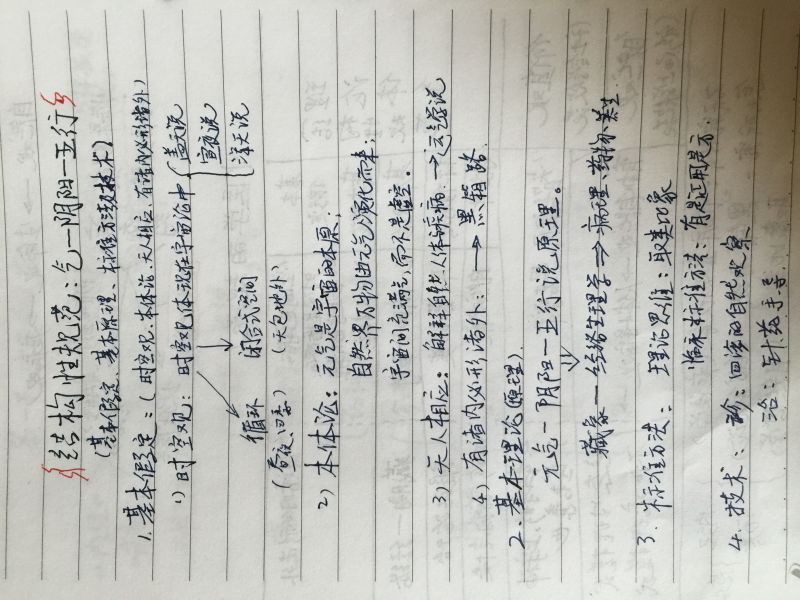 结构性规范：气—阴阳—五行
(基本假定、基本原理、标准方法及技术)
1. 基本假定：(时空观、本体论、天人相应、有诸内必形诸外)
1) 时空观：时空观体现在宇宙论中 盖天说
宣夜说
浑天说
循环 闭合式空间
(昼夜、四季) (天包地外)
2) 本体论：元气是宇宙的本原；
自然界万物由元气演化而来；
宇宙间充满气，而不是虚空。
3) 天人相应：解释自然、人体疾病 → 运气学说
4) 有诸内必形诸外： → 黑箱路
2. 基本理论(原理)
元气—阴阳—五行说原理。
藏象—经络生理学 ⇒ 病理、药物、养生
3. 标准方法： 理论思维：取类比象
临床标准方法：有是证用是方.
4. 技术： 诊：四诊的自然观察
治：针药手导